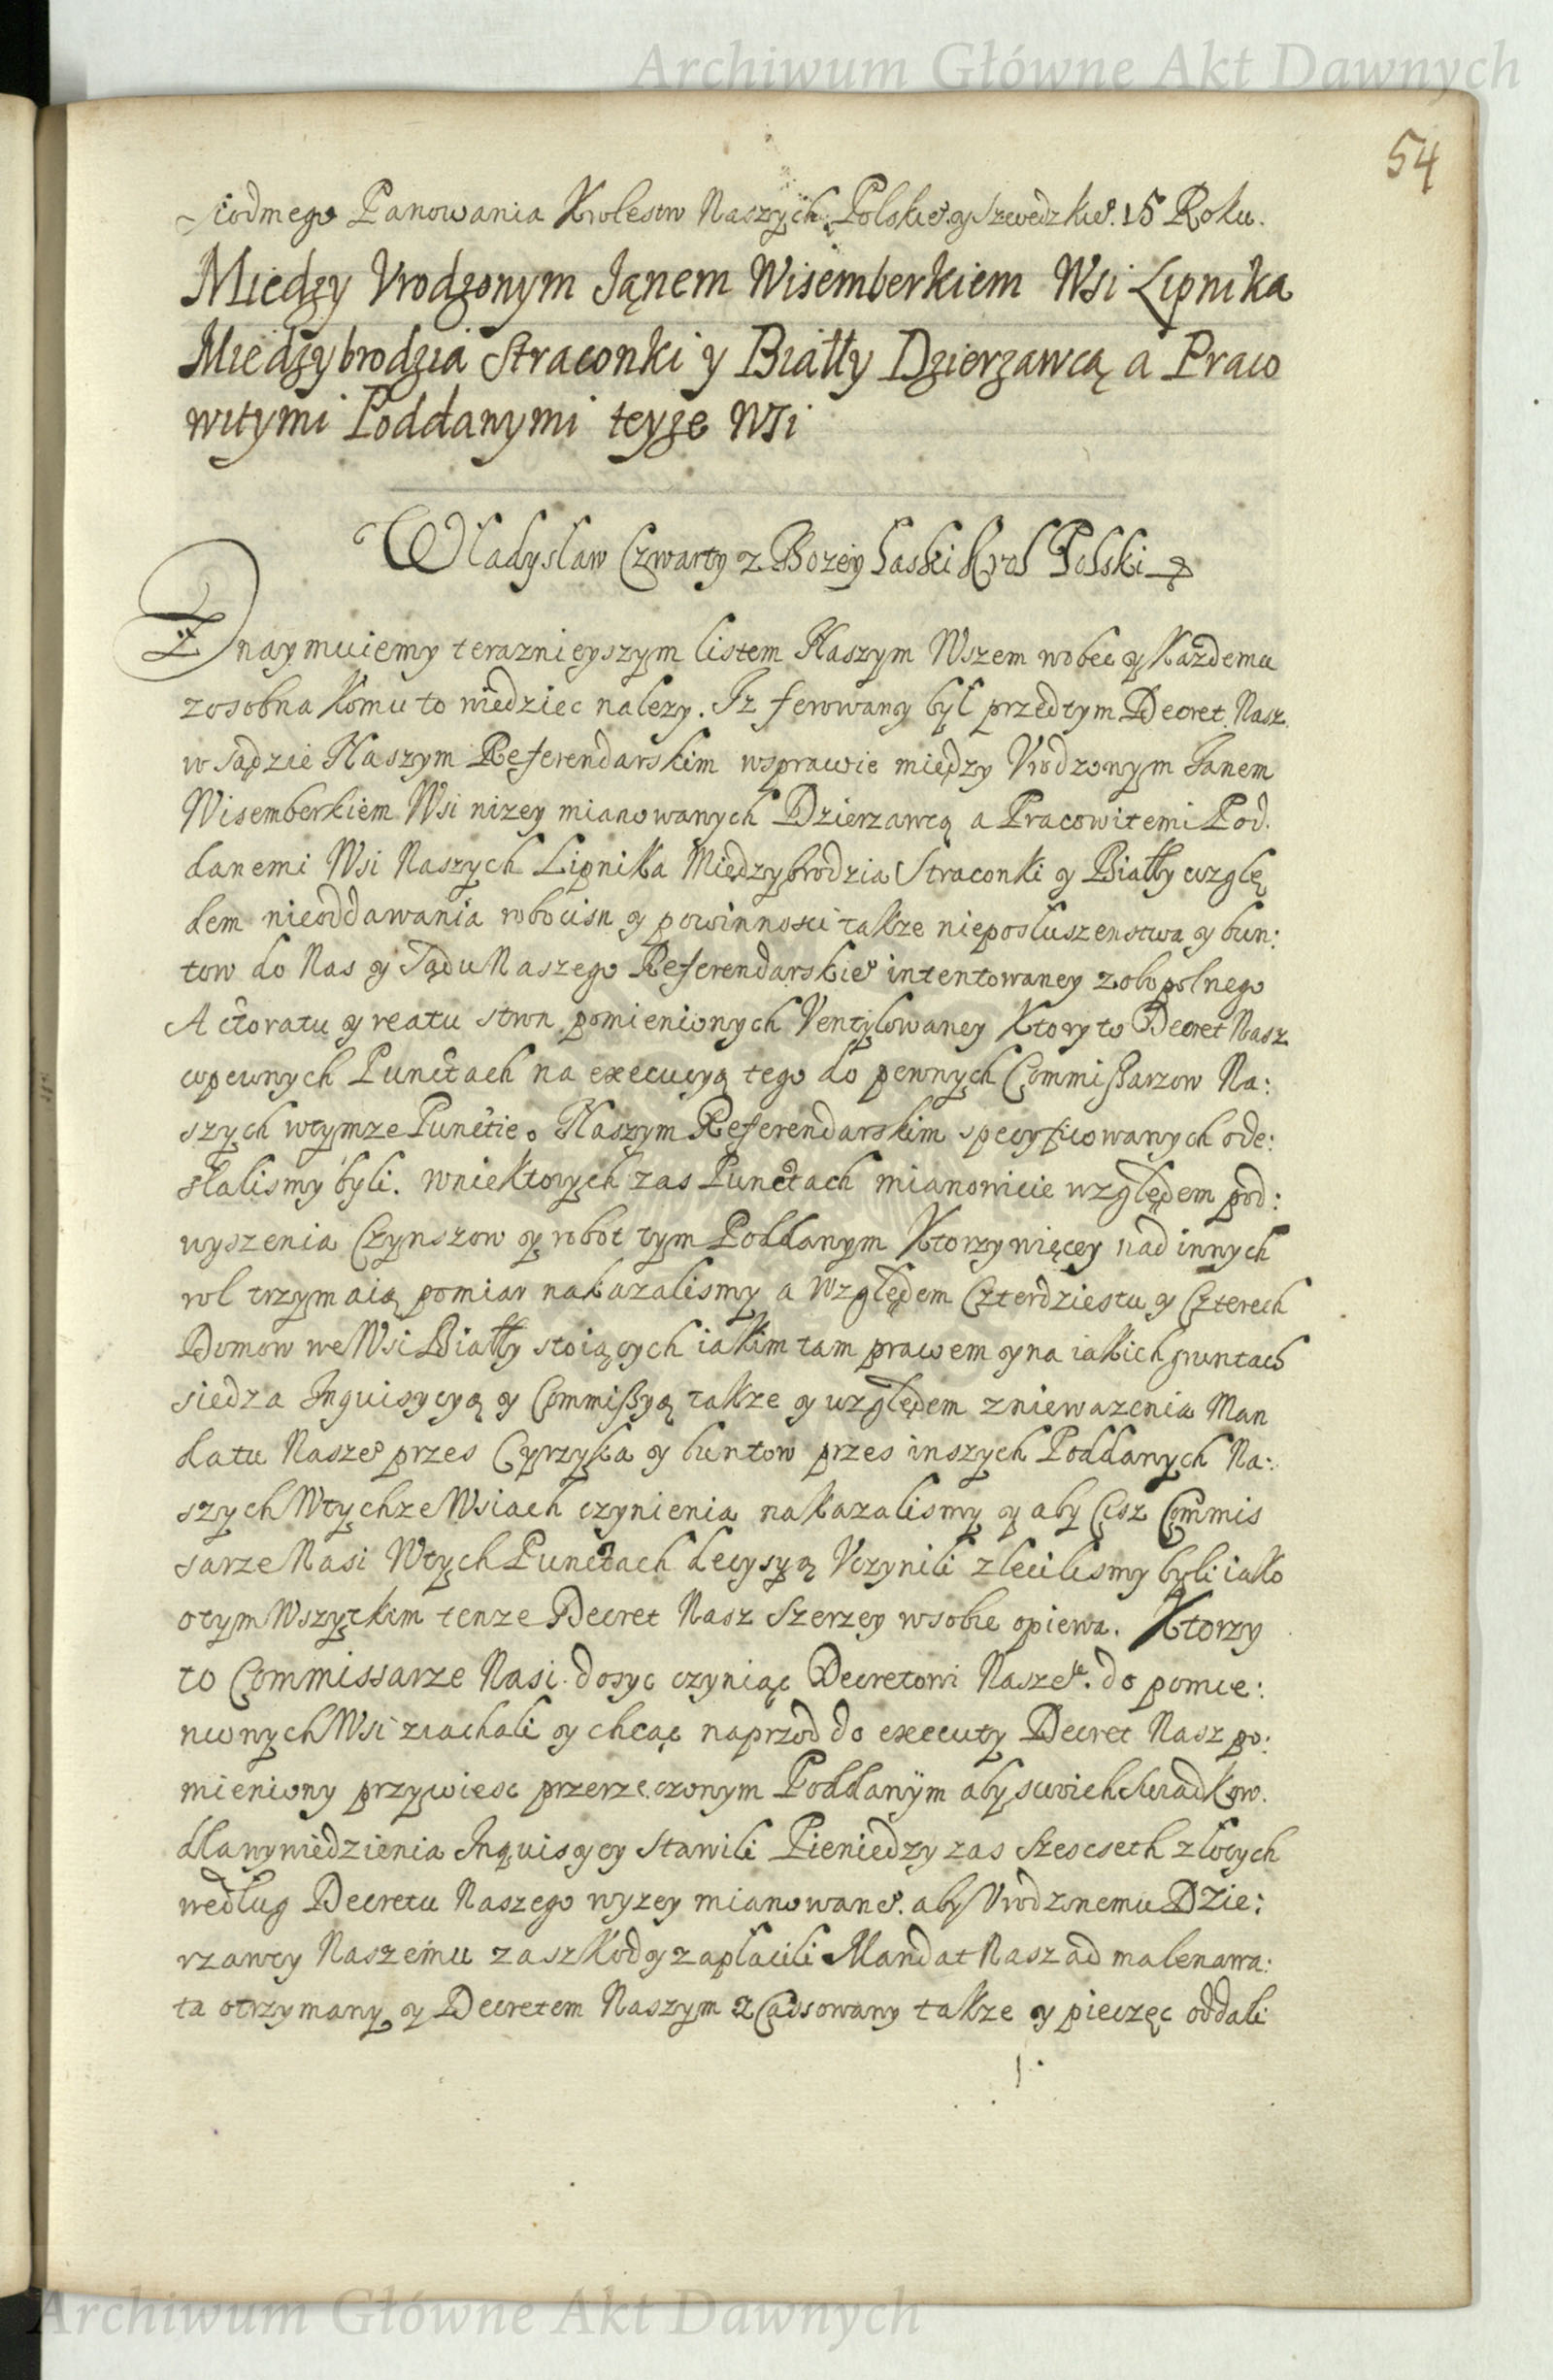 Archiwum Główne Akt Dawnych
54
Siodmego Panowania Krolestw Naszych Polskieº y Szwedzkieº. 15 Roku.
Między Vrodzonym Janem Wisemberkiem Wsi Lipnika
Międzybrodzia Straconki y Białły Dzierzawcą a Praco
witymi Poddanymi teyze Wsi
Władysław Czwarty z Bozey Łaski Krol Polski
Znaymuiemy teraznieyszym listem Naszym Wszem wobec y Kazdemu
zosobna Komu to wiedziec nalezy. Iz ferowany był przedtym Decret Nasz
w Sądzie Naszym Referendarskim wsprawie między Vrodzonym Janem
Wisemberkiem Wsi nizey mianowanych Dzierzawcą a Pracowitemi Pod.
danemi Wsi Naszych Lipnika Międzybrodzia Straconki y Białły wzglę
dem nieoddawania robocisn y powinnosci takze nieposłuszenstwa y bun:
tow do Nas y Sądu Naszego Referendarskieº intentowaney zobopolnego
Actoratu y reatu stron pomienionych Ventylowaney Ktory to Decret Nasz
wpewnych Punctach na execucyą tego do pewnych Commissarzow Na:
szych wtymze Punctie. Naszym Referendarskim specyficowanych ode:
słalismy byli. wniektorych zas Punctach mianowicie względem pod:
wyszenia Czynszow y robot tym Poddanym Ktorzy więcey nad innych
rol trzymaią pomiar nakazalismy a względem Czterdziestu y Czterech
Domow we Wsi Białły stoiących iakim tam prawem y na iakich gruntach
siedza Inquisycyą y Commissyą takze y względem zniewazenia Man
datu Naszeº przes Cyrzyka y buntow przes inszych Poddanych Na:
szych Wtychze Wsiach czynienia nakazalismy y aby Cisz Commis
sarze Nasi Wtych Punctach decysyą Vczynili zlecilismy byli iako
otym Wszytkim tenze Decret Nasz Szerzey wsobie opiewa. Ktorzy
to Commissarze Nasi dosyc czyniąc Decretowi Naszeº. do pomie:
nionych Wsi ziachali y chcąc naprzod do executy Decret Nasz po:
mieniony przywiesc przerzeczonym Poddanym aby swoich Swiadkow.
dla wywiedzienia Inquisycy Stawili Pieniedzy zas Szescseth złotych
według Decretu Naszego wyzey mianowaneº. aby Vrodzonemu Dzie:
rzawcy Naszemu za szkody zapłacili Mandat Nasz ad malenarra:
ta otrzymany y Decretem Naszym zCassowany takze y pieczęc oddali
Archiwum Główne Akt Dawnych